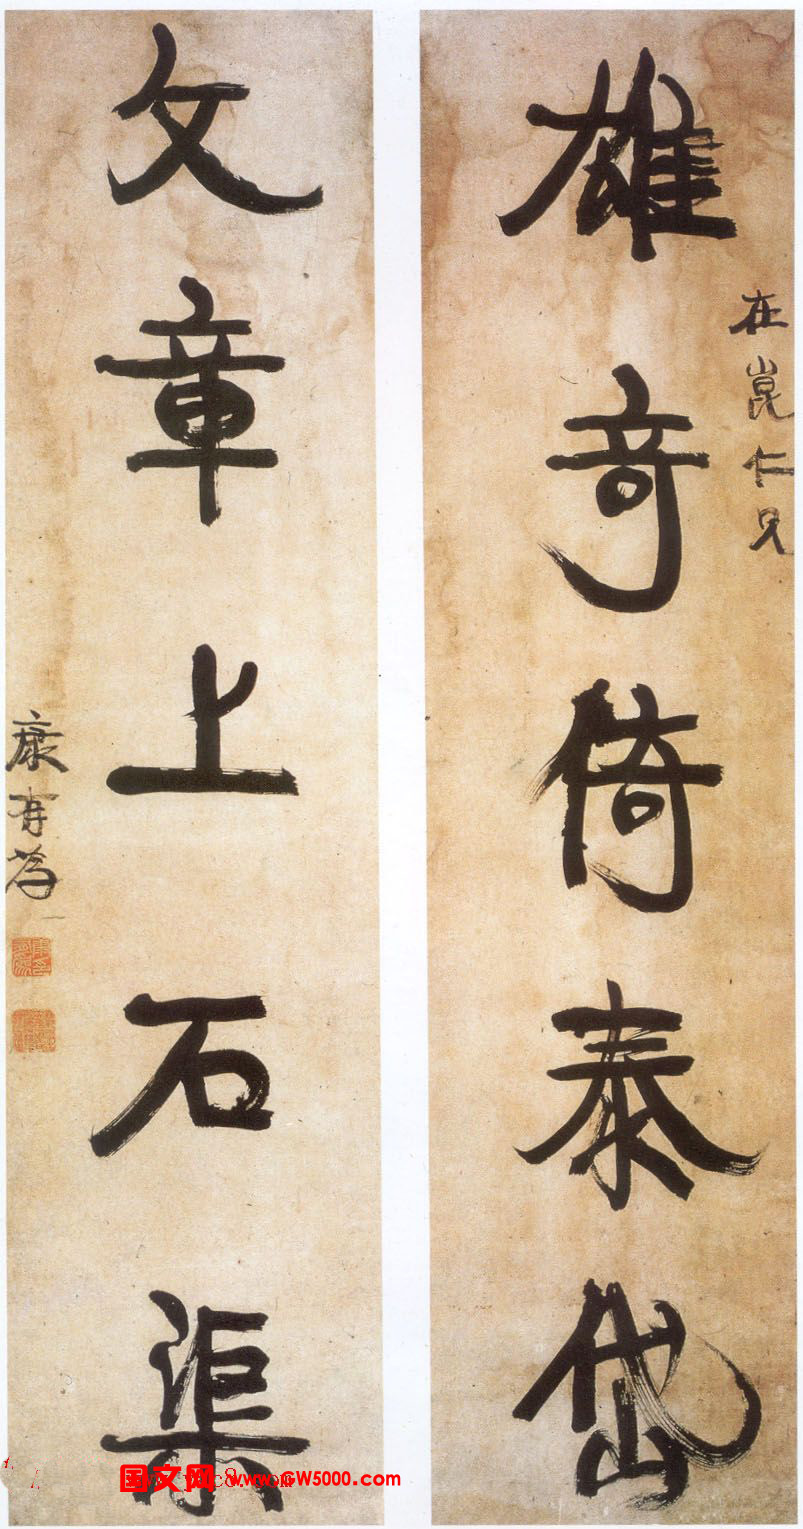 在崑仁兄
雄奇倚泰岱
文章上石渠
康有為
国文网 www.GW5000.com